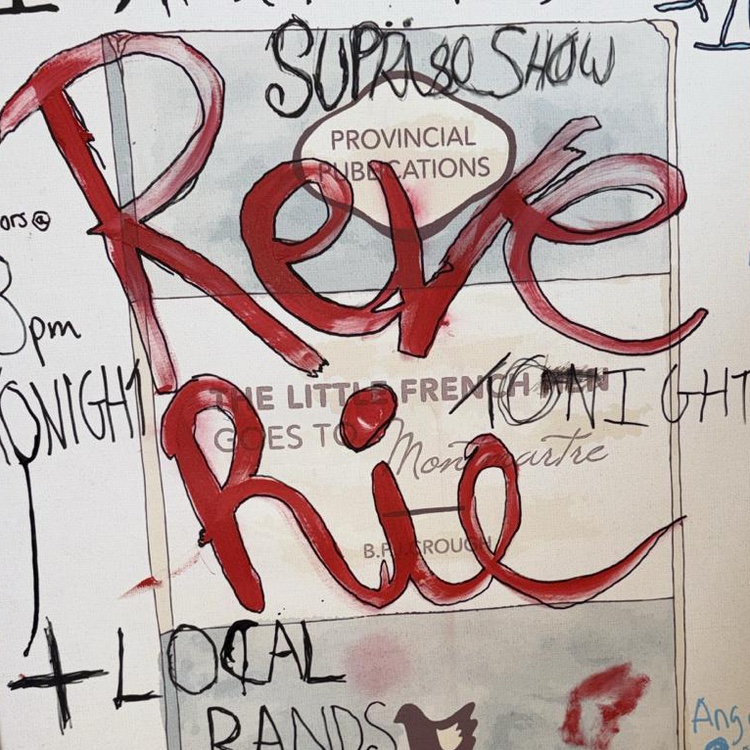 SUPRISE SHOW
PROVINCIAL
PUBLICATIONS
Reve
ors@
8pm
THE LITTLE FRENCH HEN
TONIGHT
TONIGHT
GOES TO
Montmartre
Rie
+ LOCAL
BANDS
Ang